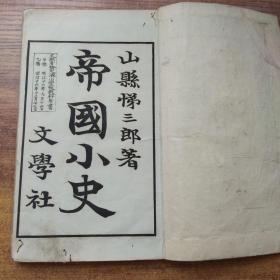 山縣悌三郎著
帝國小史
文學社